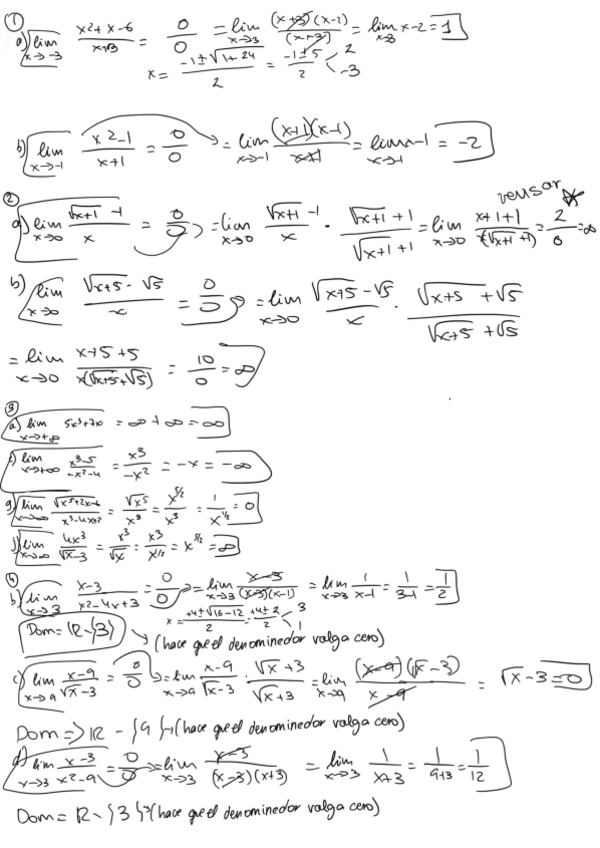 ①
a) lim x→-3 x2+x-6 / x+3 = 0/0 = lim x→3 (x+3)(x-2) / (x+3) = lim x→3 x-2 = 1
x = -1±√1+24 / 2 = -1±5 / 2 2 -3
b) lim x→-1 x2-1 / x+1 = 0/0 = lim x→-1 (x+1)(x-1) / x+1 = lim x→-1 x-1 = -2
②
a) lim x→0 √x+1 -1 / x = 0/0 = lim x→0 √x+1 -1 / x · √x+1 +1 / √x+1 +1 = lim x→0 x+1+1 / x(√x+1 +1) = 2/0 = ∞
b) lim x→0 √x+5 - √5 / x = 0/0 = lim x→0 √x+5 - √5 / x · √x+5 + √5 / √x+5 + √5
= lim x→0 x+5+5 / x(√x+5+√5) = 10/0 = ∞
③
a) lim x→+∞ 5x3+7x = ∞ + ∞ = ∞
lim x→+∞ x3-5 / -x2-4 = x3 / -x2 = -x = -∞
g) lim x→∞ √x5+2x-6 / x3-4x+2 = √x5 / x3 = x5/2 / x3 = 1 / x1/2 = 0
j) lim x→∞ 4x3 / √x-3 = x3 / √x = x3 / x1/2 = x5/2 = ∞
④
b) lim x→3 x-3 / x2-4x+3 = 0/0 = lim x→3 x-3 / (x-3)(x-1) = lim x→3 1 / x-1 = 1 / 3-1 = 1/2
x = +4±√16-12 / 2 = +4±2 / 2 3 1
Dom = R-{3} → (hace que el denominador valga cero)
c) lim x→9 x-9 / √x-3 = 0/0 = lim x→9 x-9 / √x-3 · √x+3 / √x+3 = lim x→9 (x-9)(√x-3) / x-9 = √x-3 = 0
Dom => R - {9} → (hace que el denominador valga cero)
d) lim x→3 x-3 / x2-9 = 0/0 = lim x→3 x-3 / (x-3)(x+3) = lim x→3 1 / x+3 = 1 / 9+3 = 1/12
Dom = R-{3} → (hace que el denominador valga cero)